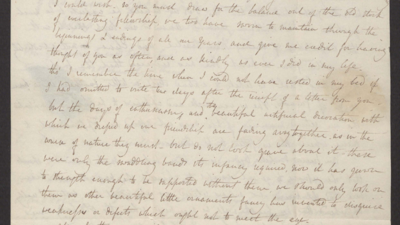 I could wish, so you must draw for the balance out of the old stock
of everlasting friendship we two have sworn to maintain through the
beginnings & endings of all our years, and give me credit for having
thought of you as often and as kindly as ever I did in my life
tho' I remember the time when I could not have rested in my bed if
I had omitted to write two days after the receipt of a letter from you
but the days of enthusiasm, and the beautiful artificial decoration with
which we dressed up our friendship are fading away together as in the
course of nature they must. but do not look grave about it these
were only the swaddling bands its infancy required, now it has grown
to strength enough to be supported without them we should only look on
them as other beautiful little ornaments fancy has invented to disguise
weaknesses or defects which ought not to meet the eye